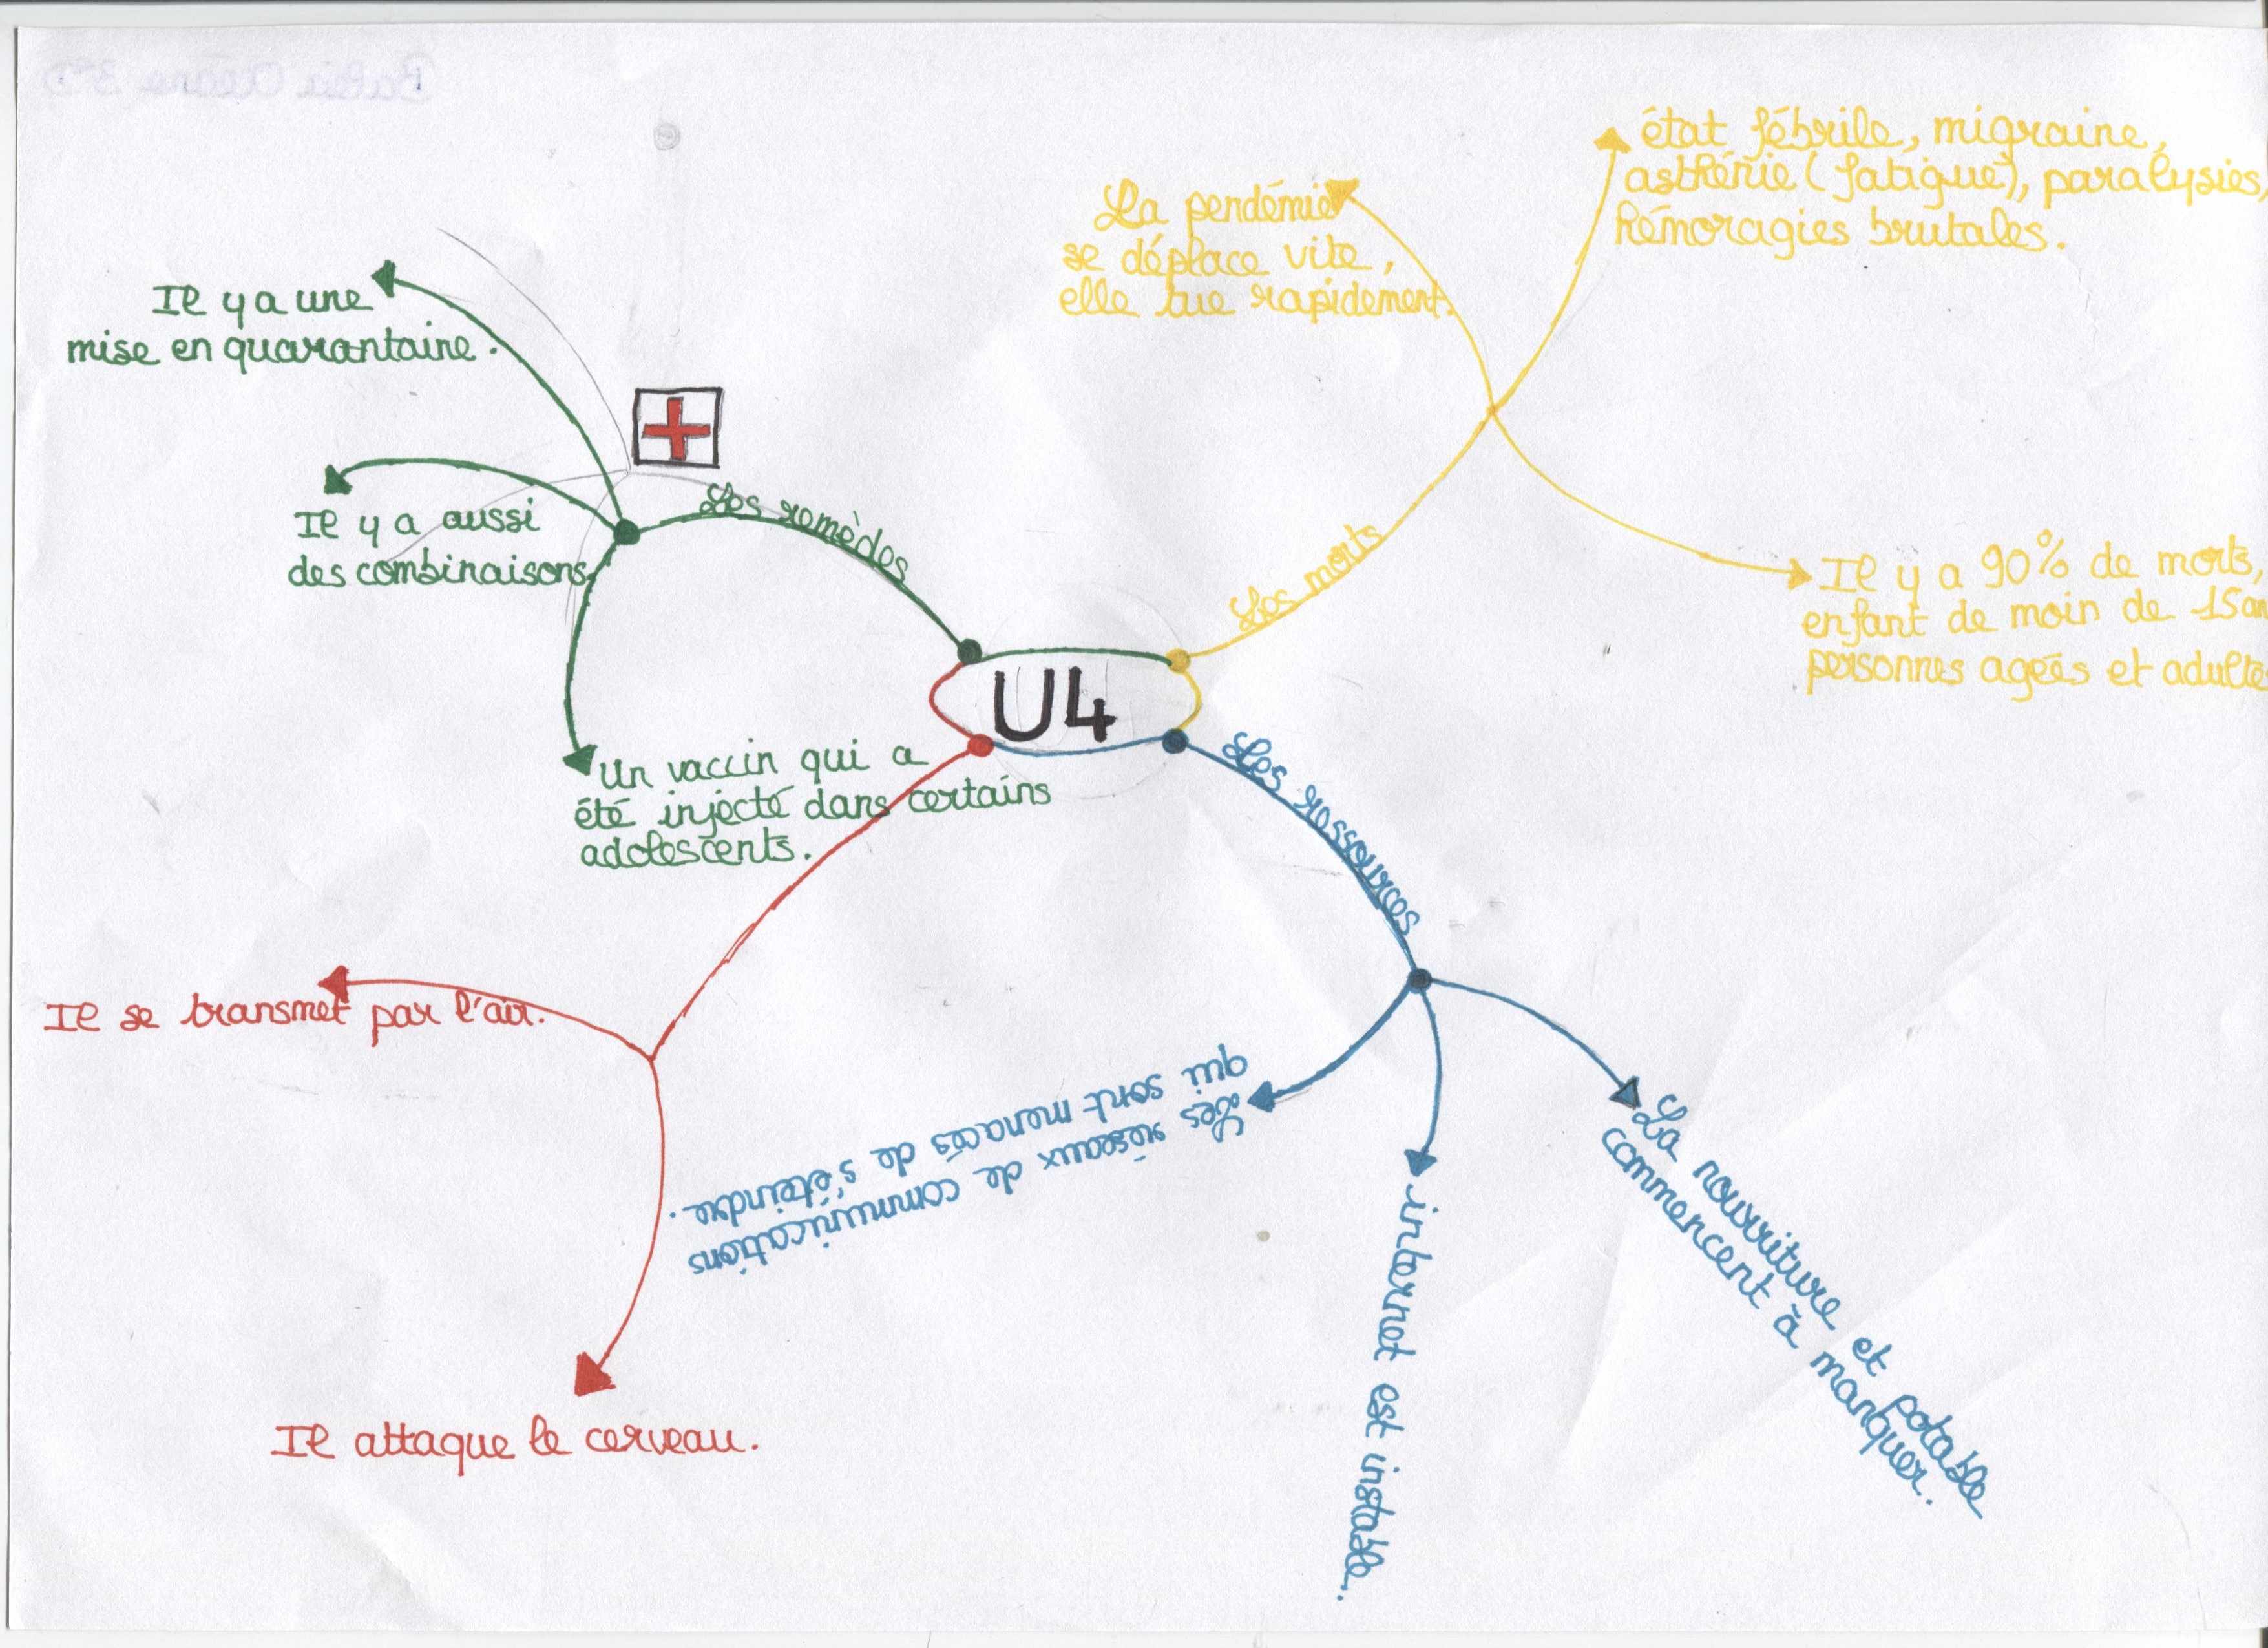 U4
Les remèdes
Il y a une
mise en quarantaine.
Il y a aussi
des combinaisons.
Un vaccin qui a
été injecté dans certains
adolescents.
Les morts
La pendémie
se déplace vite,
elle tue rapidement.
état fébrile, migraine,
asthénie (fatigue), paralysies,
hémoragies brutales.
Il y a 90% de morts,
enfant de moin de 15 an
personnes agées et adulte
Les ressources
La nourriture et potable
commencent à manquer.
internet est instable.
Les réseaux de communications
qui sont menacés de s'éteindre.
Il se transmet par l'air.
Il attaque le cerveau.